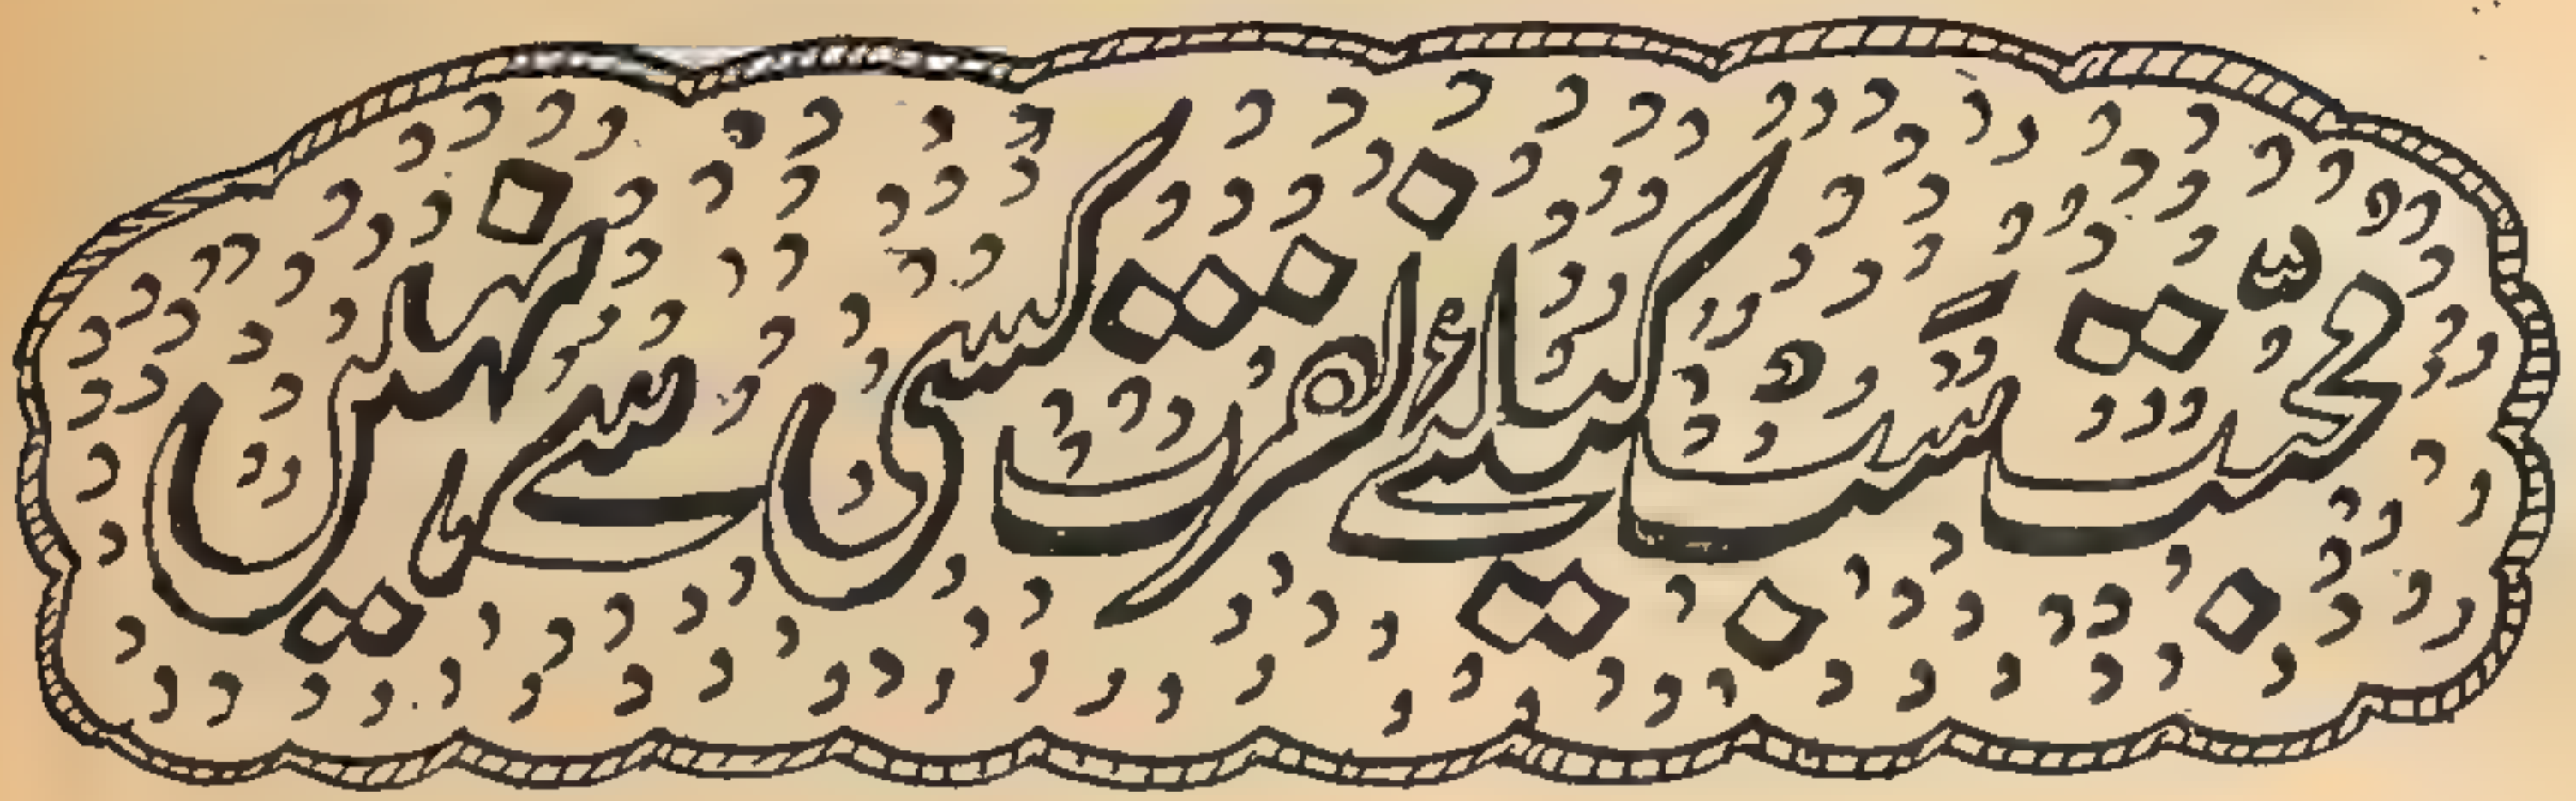 محبت سب کیلئے نفرت کسی سے نہیں